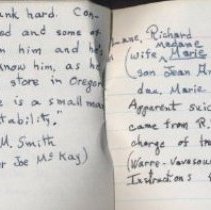 nk hard. Con-
ed and some of
n him and he's
know him, as h
store in Oregon
e is a small man
tability."
M. Smith
or Joe McKay)
Lane, Richard
madame
(wife Marie
son Jean
dau. Marie
Apparent suic
came from R.
charge of tra
(Warre-Vavasour
Instructions f